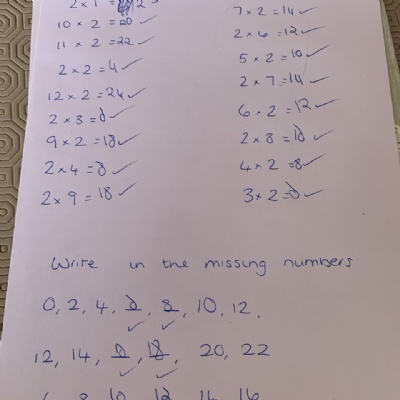 2 × 1 = 2
10 × 2 = 20 ✓
11 × 2 = 22 ✓
2 × 2 = 4 ✓
12 × 2 = 24 ✓
2 × 3 = 6 ✓
9 × 2 = 18 ✓
2 × 4 = 8 ✓
2 × 9 = 18 ✓
7 × 2 = 14 ✓
2 × 6 = 12 ✓
5 × 2 = 10 ✓
2 × 7 = 14 ✓
6 × 2 = 12 ✓
2 × 8 = ✓
4 × 2 = 8 ✓
3 × 2 = 6 ✓
Write in the missing numbers
0, 2, 4, 6, 8, 10, 12,
12, 14, 18, 20, 22
6 8 10 12 14 16